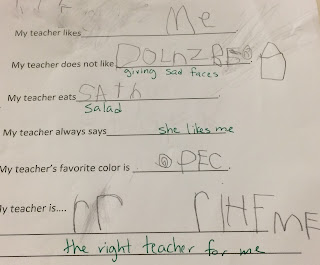 My teacher likes Me
My teacher does not like
giving sad faces
My teacher eats SATh
Salad
My teacher always says she likes me
My teacher's favorite color is PEC.
My teacher is.... rr RIHE ME
the right teacher for me